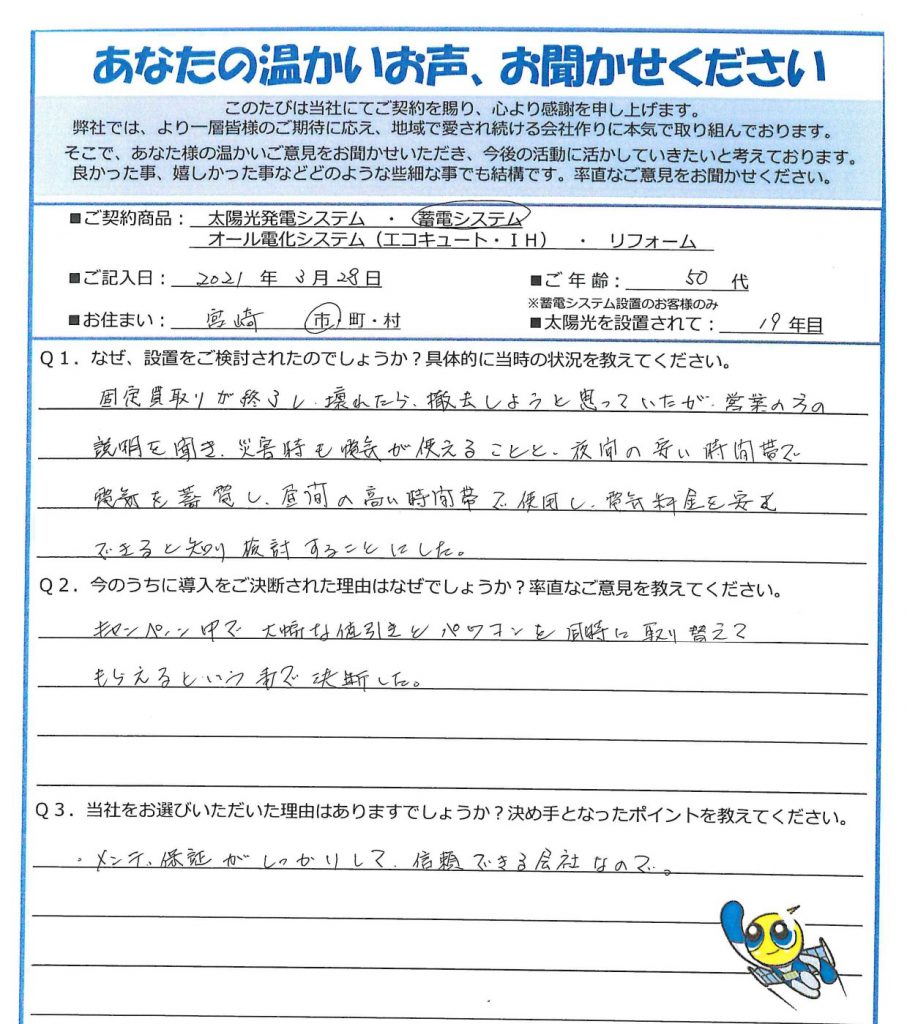 あなたの温かいお声、お聞かせください
このたびは当社にてご契約を賜り、心より感謝を申し上げます。
弊社では、より一層皆様のご期待に応え、地域で愛され続ける会社作りに本気で取り組んでおります。
そこで、あなた様の温かいご意見をお聞かせいただき、今後の活動に活かしていきたいと考えております。
良かった事、嬉しかった事などどのような些細な事でも結構です。率直なご意見をお聞かせください。
■ご契約商品： 太陽光発電システム ・ 蓄電システム
オール電化システム（エコキュート・ＩＨ） ・ リフォーム
■ご記入日： 2021 年 3月28日 ■ご年齢： 50 代
※蓄電システム設置のお客様のみ
■お住まい： 宮崎 市・町・村 ■太陽光を設置されて： 19 年目
Ｑ１．なぜ、設置をご検討されたのでしょうか？具体的に当時の状況を教えてください。
固定買取りが終了し、壊れたら、撤去しようと思っていたが、営業の方の
説明を聞き、災害時も電気が使えることと、夜間の安い時間帯で
電気を蓄電し、昼間の高い時間帯で使用し、電気料金を安く
できると知り検討することにした。
Ｑ２．今のうちに導入をご決断された理由はなぜでしょうか？率直なご意見を教えてください。
キャンペーン中で大幅な値引きとパワコンを同時に取り替えて
もらえるという事で決断した。
Ｑ３．当社をお選びいただいた理由はありますでしょうか？決め手となったポイントを教えてください。
・メンテ、保証がしっかりして、信頼できる会社なので。